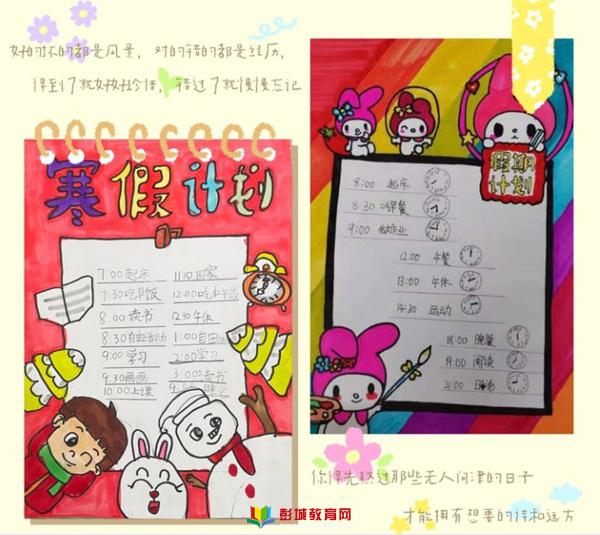 好的坏的都是风景，对的错的都是经历，
得到了就好好珍惜，错过了就慢慢忘记
寒假计划
7:00起床
7:30吃早饭
8:00读书
8:30自由活动
9:00学习
9:30画画
10:00上课
11:30回家
12:00吃中午饭
12:30午休
1:00自由
2:00学习
3:00读书
假期计划
8:00 起床
8:30 吃早餐
9:00 做作业
12:00 午餐
13:00 午休
14:30 运动
18:00 晚餐
19:00 阅读
21:00
你得先熬过那些无人问津的日子
才能拥有想要的诗和远方
彭城教育网